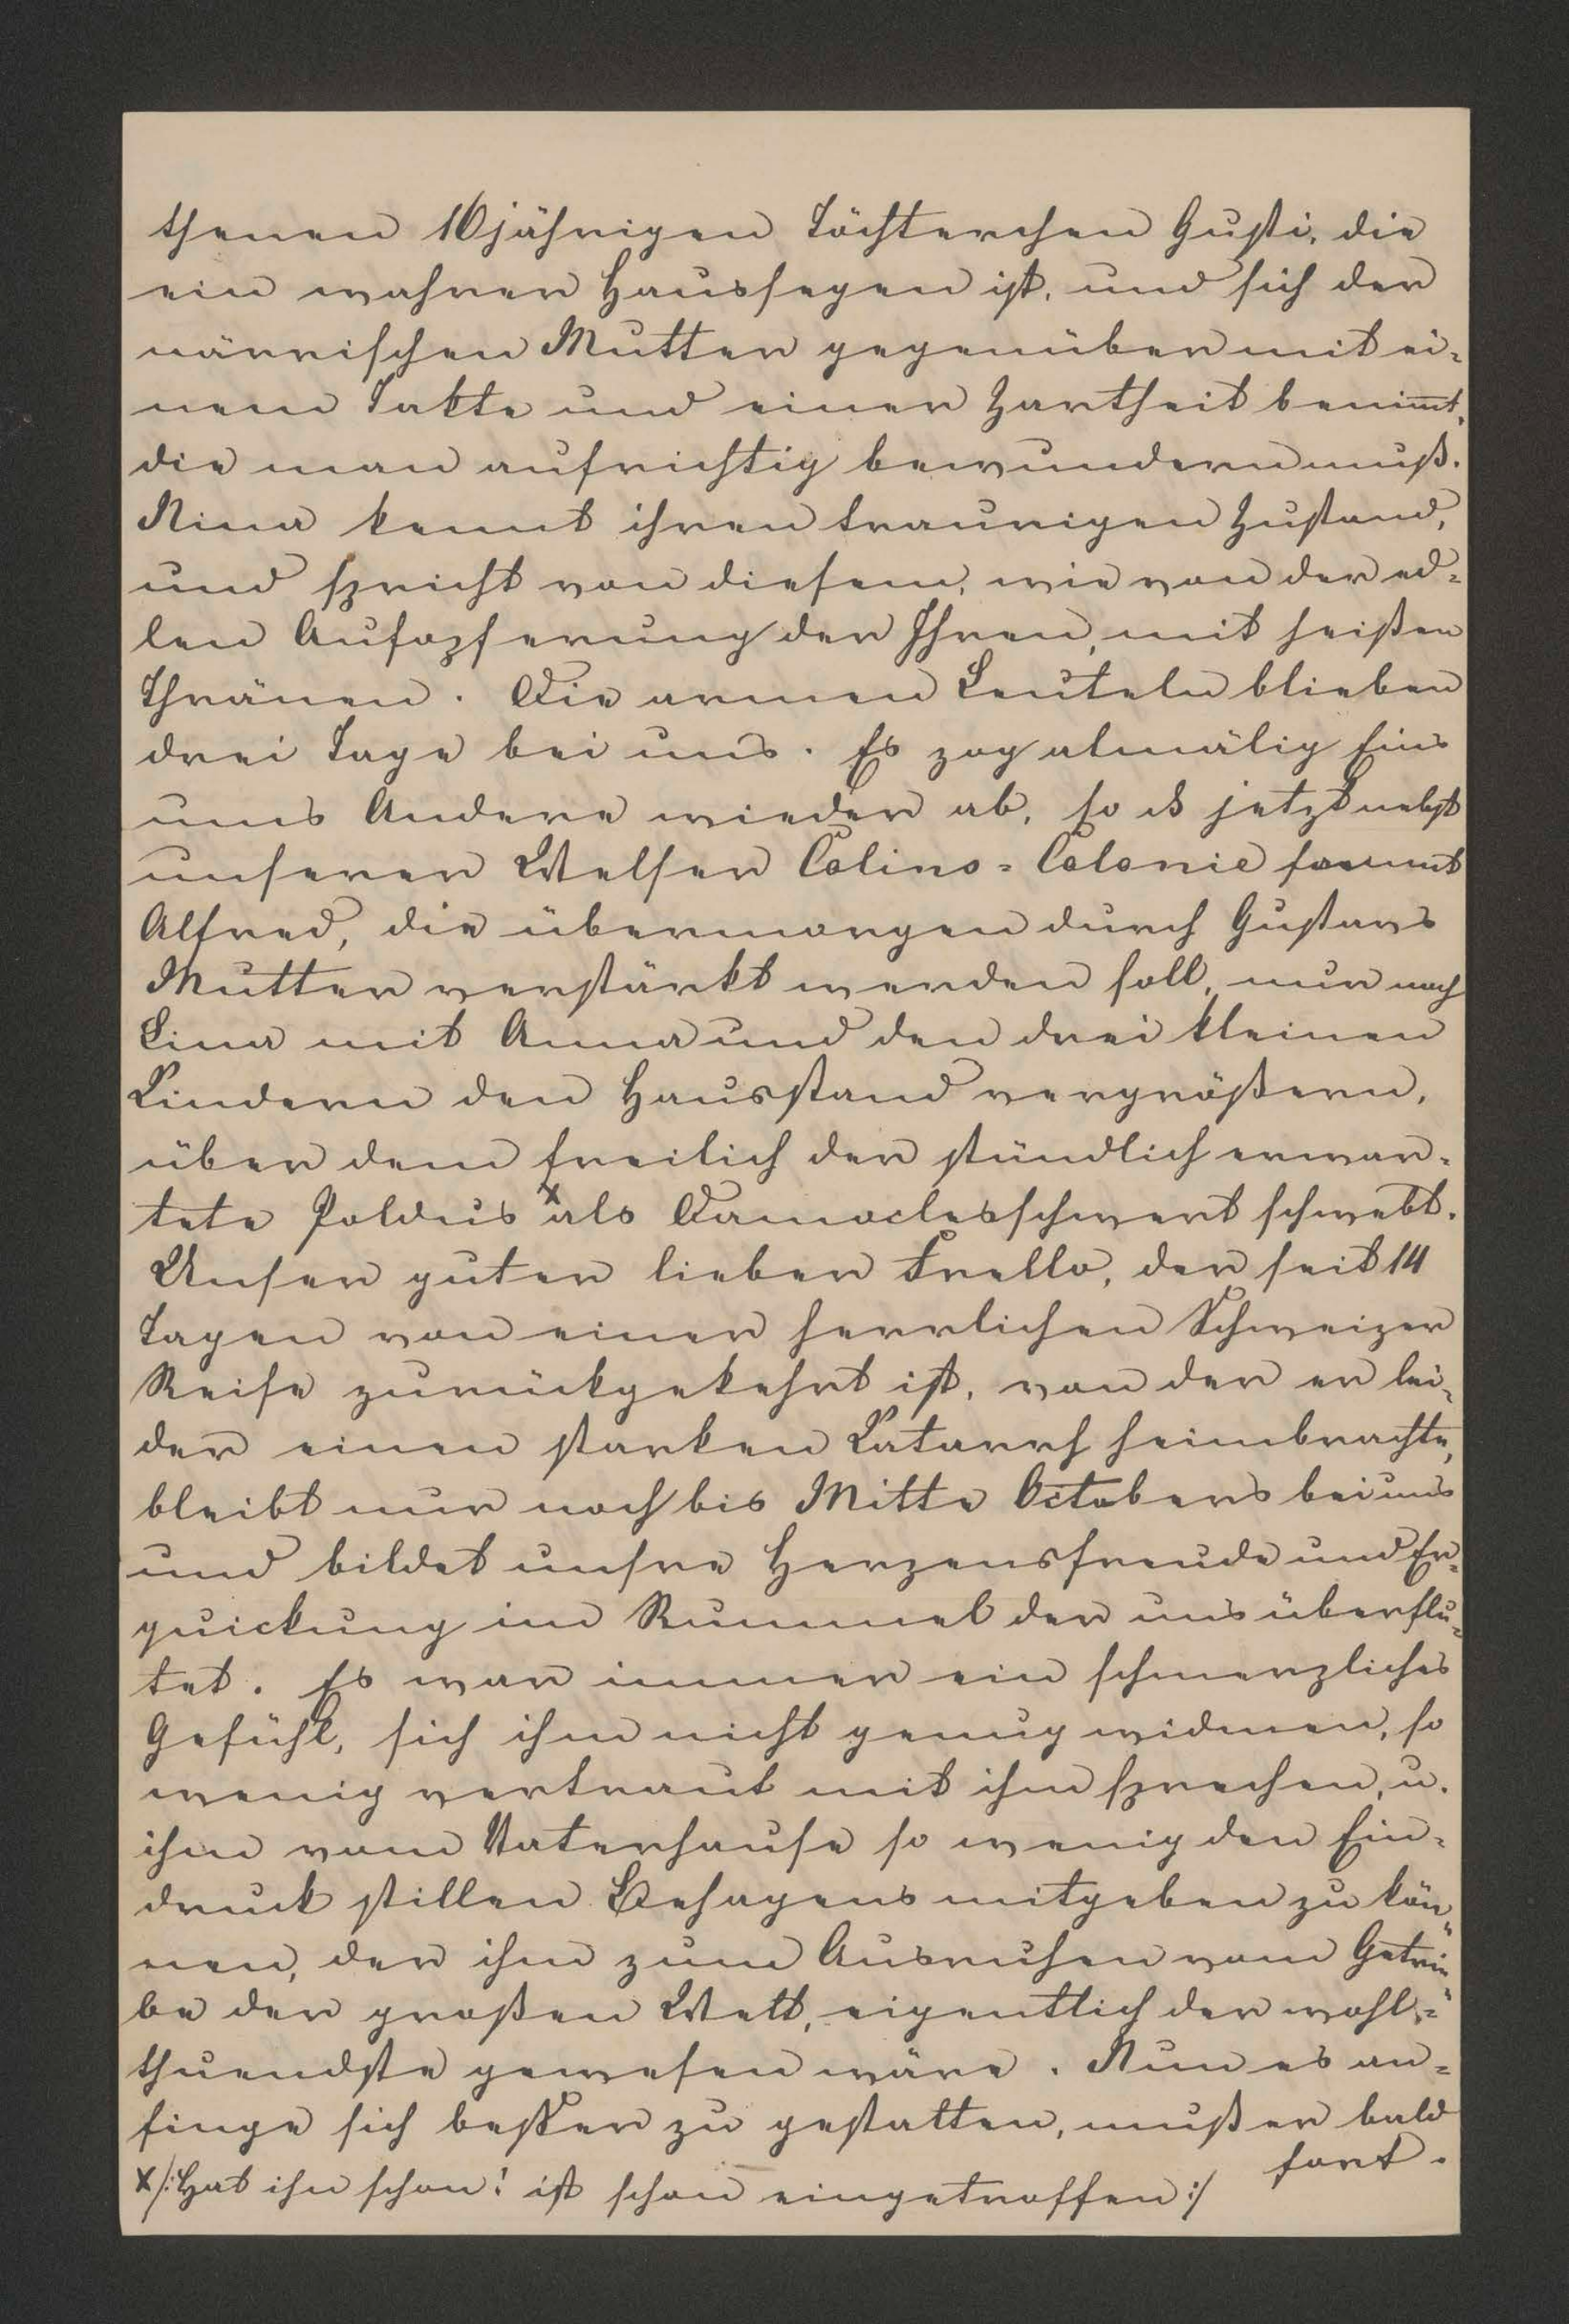 thenen 16jährigen Töchterchen Gusti, die
ein wahrer Haussegen ist, und sich der
närrischen Mutter gegenüber mit ei-
nem Takte und einer Zartheit benimmt,
die man aufrichtig bewundern muß.
Nina kennt ihren traurigen Zustand,
und spricht von diesem, wie von der ed-
len Aufopferung der Ihren, mit heißen
Thränen. Die armen Leuteln blieben
drei Tage bei uns. Es zog almälig Eins
ums Andere wieder ab, so daß jetzt nebst
unserer Welser Colino-Colonie sammt
Alfred, die übermorgen durch Gustavs
Mutter verstärkt werden soll, nur noch
Lina mit Anna und den drei kleinen
Kindern den Hausstand vergrößern,
über dem freilich der stündlich erwar-
tete Poldus x als Damoclesschwert schwebt.
Unser guter lieber Trello, der seit 14
Tagen von einer herrlichen Schweizer
Reise zurückgekehrt ist, von der er lei-
der einen starken Katarrh heimbrachte,
bleibt nur noch bis Mitte Octobers bei uns
und bildet unsre Herzensfreude und Er-
quickung im Rummel der uns überflu-
tet. Es war immer ein schmerzliches
Gefühl, sich ihm nicht genug widmen, so
wenig vertraut mit ihm sprechen, u.
ihm vom Vaterhause so wenig den Ein-
druck stillen Behagens mitgeben zu kön-
nen, der ihm zum Ausruhen vom Getrie-
be der großen Welt, eigentlich der wohl-
thuendste gewesen wäre. Nun es an-
finge sich besser zu gestalten, muß er bald
fort.
x /: Hat ihn schon! ist schon eingetroffen :/